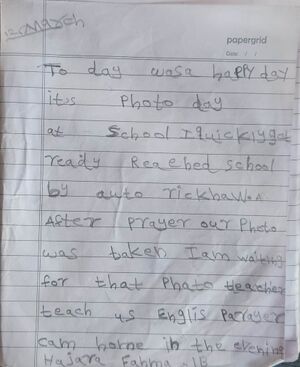 12 March
papergrid
Date: / /
To day wasa happy day
it,s photo day
at School I quickly got
ready Reached school
by auto rickhaw.
After prayer our Photo
was taken I am waiting
for that Photo teacher
teach us Englis
cam home in the evening
Hajara Fahma